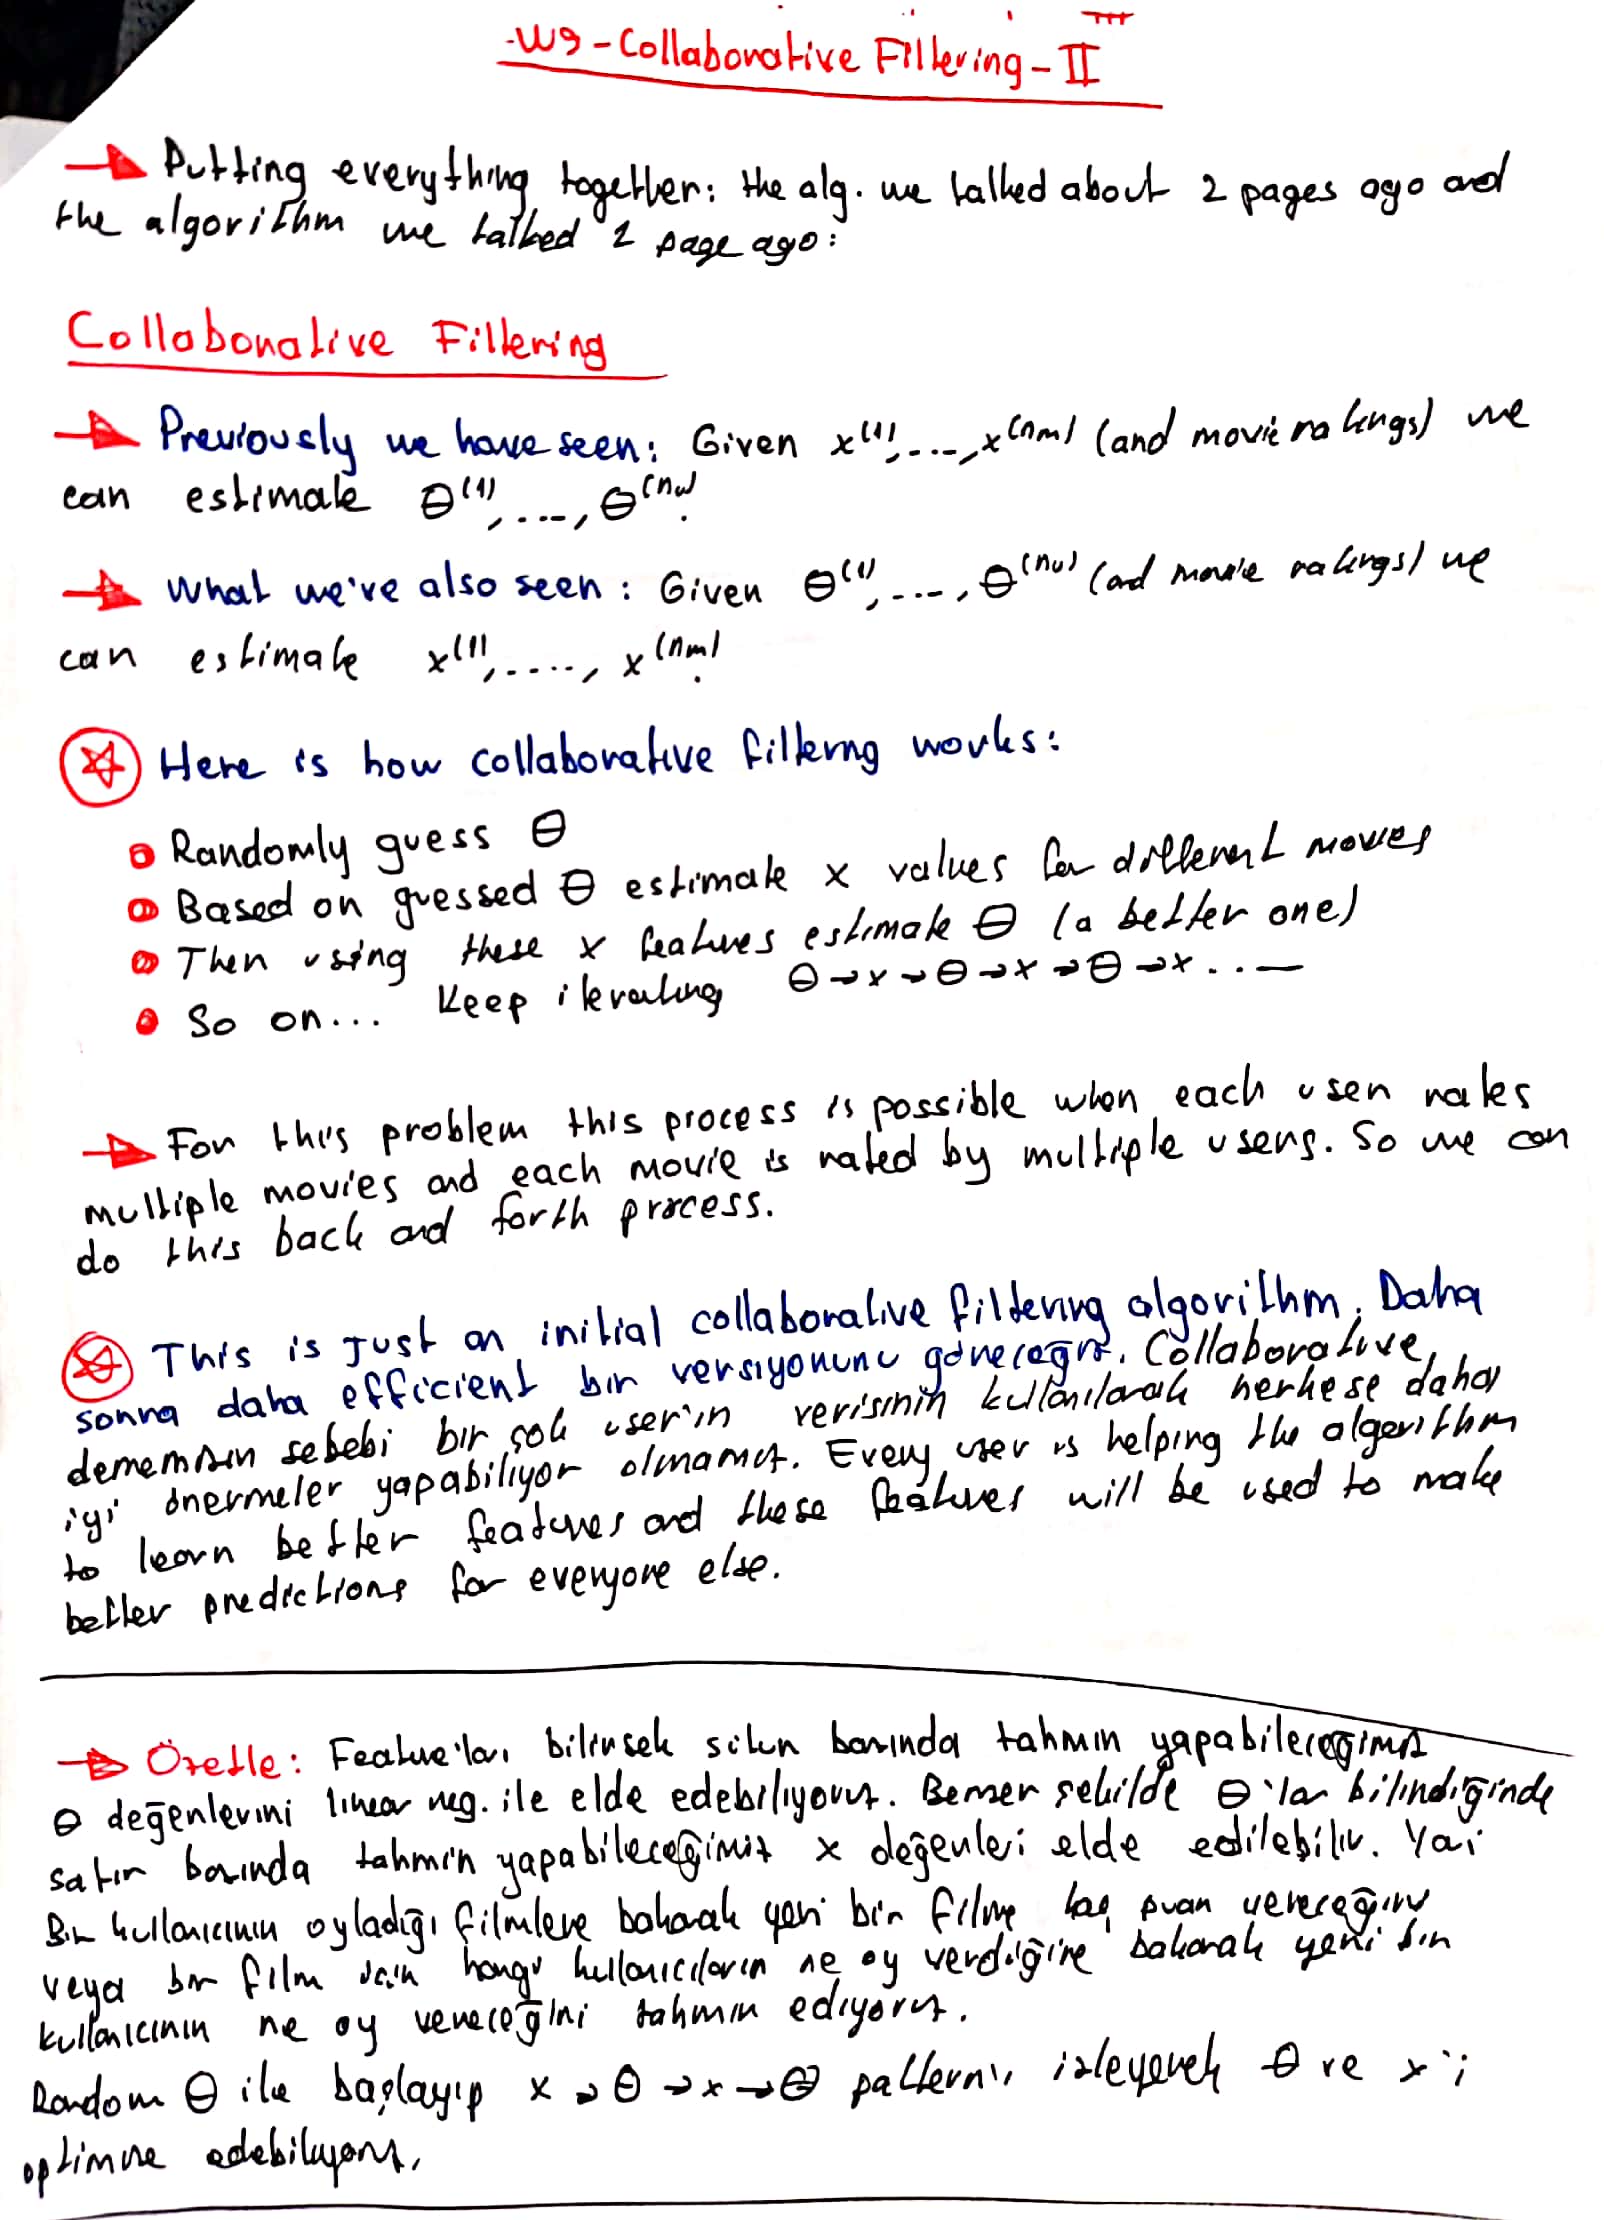 -W9-Collaborative Filtering-II
→ Putting everything together: the alg. we talked about 2 pages ago and
the algorithm we talked 1 page ago:
Collaborative Filtering
→ Previously we have seen: Given x^(1),...,x^(nm) (and movie ratings) we
can estimate θ^(1),...,θ^(nu).
→ What we've also seen: Given θ^(1),...,θ^(nu) (and movie ratings) we
can estimate x^(1),....,x^(nm).
Here is how collaborative filterng works:
Randomly guess θ
Based on guessed θ estimate x values for different movies
Then using these x features estimate θ (a better one)
So on... Keep iterating θ→x→θ→x→θ→x...
→ For this problem this process is possible when each user rates
multiple movies and each movie is rated by multiple users. So we can
do this back and forth process.
This is Just an initial collaborative filtering algorithm. Daha
sonra daha efficient bir versiyonunu göreceğiz. Collaborative
dememizin sebebi bir çok user'ın verisinin kullanılarak herkese daha
iyi önermeler yapabiliyor olmamız. Every user is helping the algorithm
to learn better features and these features will be used to make
better predictions for everyone else.
→ Özetle: Feature'ları bilirsek sütun bazında tahmin yapabileceğimiz
θ değerlerini linear reg. ile elde edebiliyoruz. Benzer şekilde θ'lar bilindiğinde
satır bazında tahmin yapabileceğimiz x değerleri elde edilebilir. Yani
Bir kullanıcının oyladığı filmlere bakarak yeni bir filme kaç puan vereceğini
veya bir film için hangi kullanıcıların ne oy verdiğine bakarak yeni bir
kullanıcının ne oy vereceğini tahmin ediyoruz.
Random θ ile başlayıp x→θ→x→θ pattern'ı izleyerek θ ve x'i
optimize edebiliyoruz.